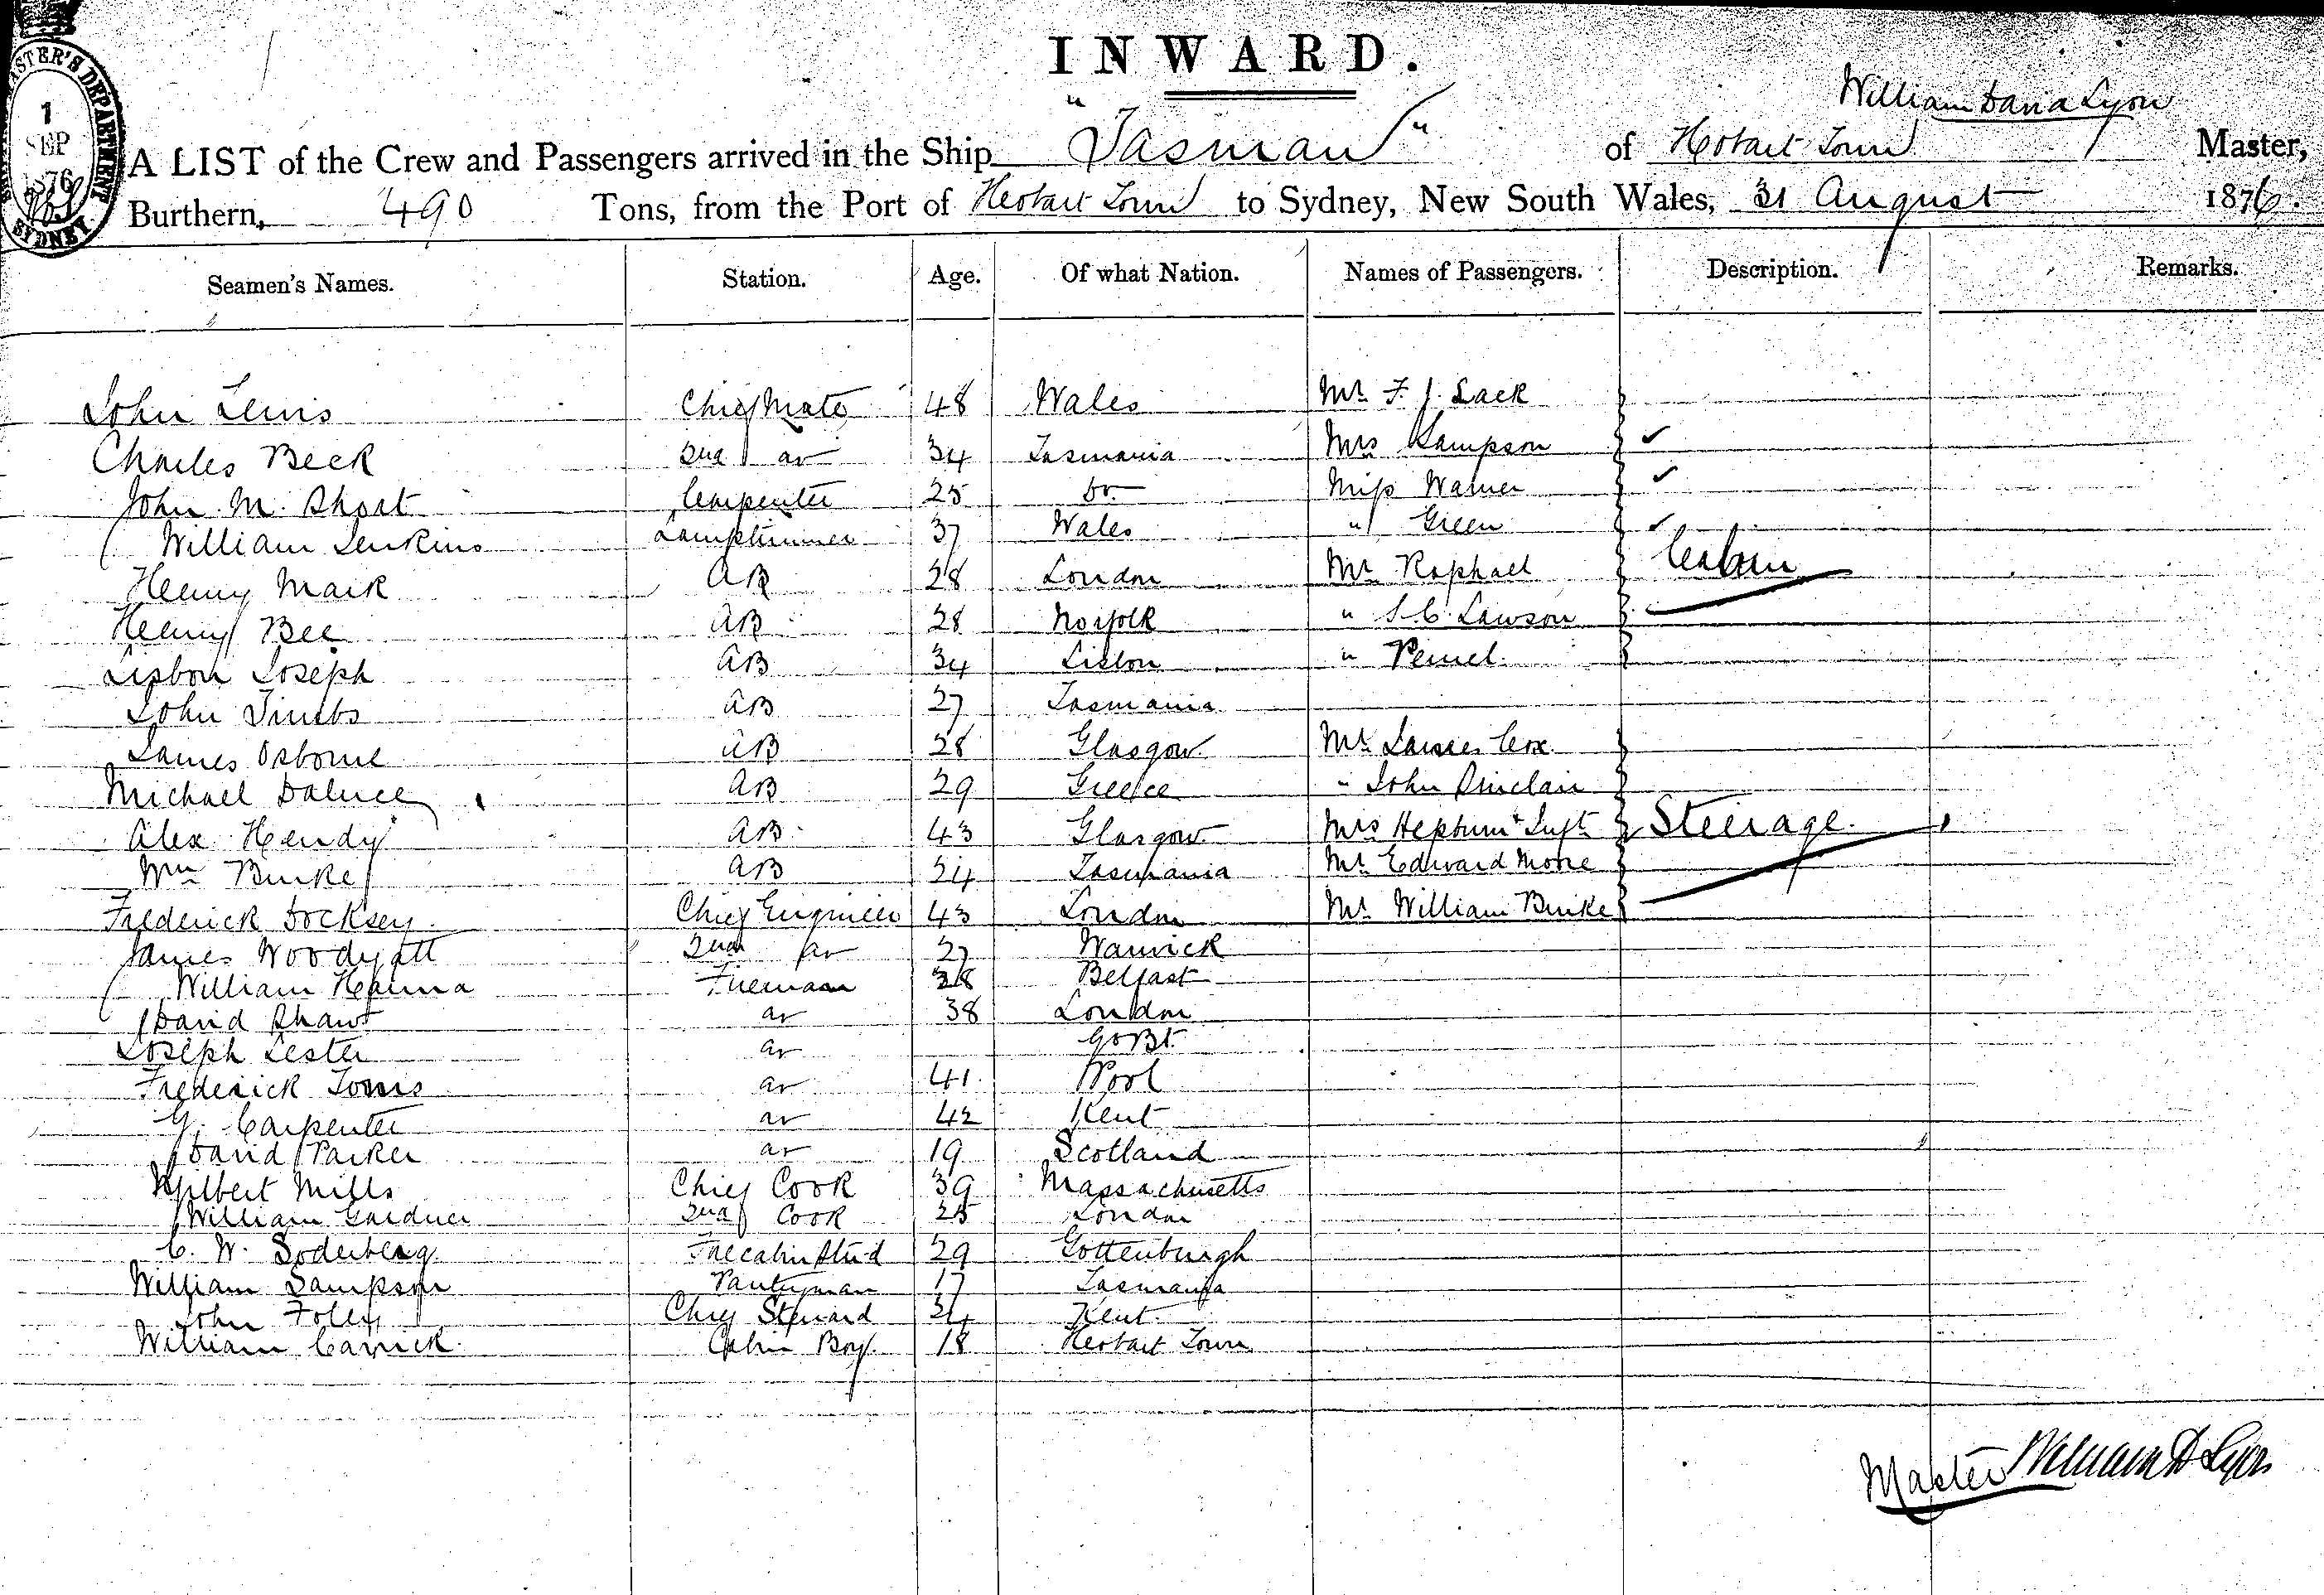 INWARD.
William David Lyon
A LIST of the Crew and Passengers arrived in the Ship "Tasman" of Hobart Town Master,
Burthern, 490 Tons, from the Port of Hobart Town to Sydney, New South Wales, 31 August 1876.
1 SEP 1876
SYDNEY
Seamen's Names. Station. Age. Of what Nation. Names of Passengers. Description. Remarks.
John Lewis Chief Mate 48 Wales Mr F. J. Lack
Charles Beck 2nd do 34 Tasmania Mrs Sampson
John M. Short Carpenter 25 Do. Miss Warner
William Jenkins Lamptrimmer 37 Wales " Green
Henry Mark AB 28 London Mr Raphael Cabin
Henry Bee AB 28 Norfolk " S. C. Lawson
Lisbon Joseph AB 34 Lisbon "
John Timbs AB 27 Tasmania
James Osborne AB 28 Glasgow Mr James Cox
Michael AB 29 Greece " John Sinclair
Alex Hendy AB 43 Glasgow Mrs Hepburn & Inft Steerage.
Wm Burke AB 24 Tasmania Mr Edward Moore
Frederick Docksey Chief Engineer 43 London Mr William Burke
James Woodyatt 2nd do 27 Warwick
William Hanna Fireman 28 Belfast
David Shaw do 38 London
Joseph Lester do
Frederick Toms do 41
G. Carpenter do 42 Kent
David Parker do 19 Scotland
Mills Chief Cook 39 Massachusetts
William Gardner 2nd Cook 25 London
C. W. Soderberg Forecabin Stwd 29 Gottenburgh
William Sampson Pantryman 17 Tasmania
John Foley Chief Steward 34 Kent
William Carrick Cabin Boy 18 Hobart Town
Master William D Lyon